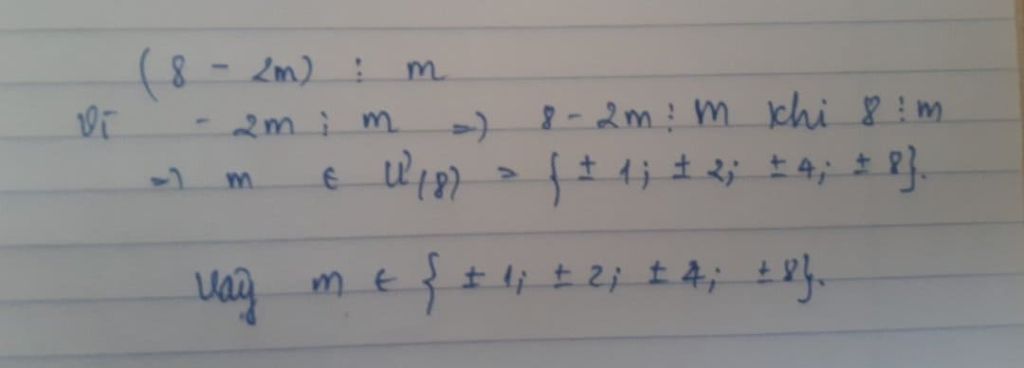 (8 - 2m) ⋮ m
Vì - 2m ⋮ m => 8 - 2m ⋮ m khi 8 ⋮ m
=> m ∈ Ư(8) = { ± 1; ± 2; ± 4; ± 8}.
Vậy m ∈ { ± 1; ± 2; ± 4; ± 8}.